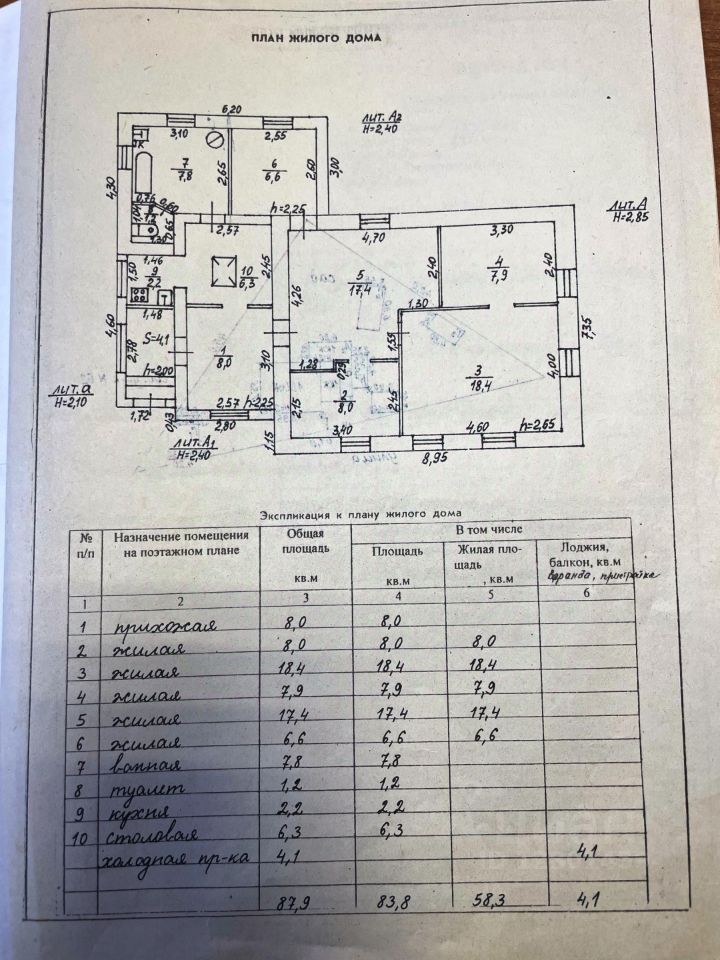 ПЛАН ЖИЛОГО ДОМА
6,20
лит. А2
Н=2,40
3,10
2,55
7
7,8
2,65
6
6,6
2,60
3,00
4,30
0,76
0,60
1,04
1,2
0,65
1,30
2,57
h=2,25
лит. А
Н=2,85
4,70
3,30
1,46
1,50
9
2,2
10
6,3
2,45
5
17,4
сад
2,40
4
7,9
2,40
4,26
1,30
1,48
4,60
2,78
S=4,1
h=2,00
1
8,0
3,10
1,55
7,35
4,00
3
18,4
1,28
0,29
2
8,0
2,15
2,45
лит. а
Н=2,10
1,72
0,43
2,57 h=2,25
2,80
1,15
3,40
4,60
h=2,65
лит. А1
Н=2,40
улица
8,95
Экспликация к плану жилого дома
№ п/п Назначение помещения на поэтажном плане Общая площадь кв.м В том числе
Площадь кв.м Жилая пло- щадь , кв.м Лоджия, балкон, кв.м
веранда, пристройка
1 2 3 4 5 6
1 прихожая 8,0 8,0
2 жилая 8,0 8,0 8,0
3 жилая 18,4 18,4 18,4
4 жилая 7,9 7,9 7,9
5 жилая 17,4 17,4 17,4
6 жилая 6,6 6,6 6,6
7 ванная 7,8 7,8
8 туалет 1,2 1,2
9 кухня 2,2 2,2
10 столовая 6,3 6,3
холодная пр-ка 4,1 4,1
87,9 83,8 58,3 4,1